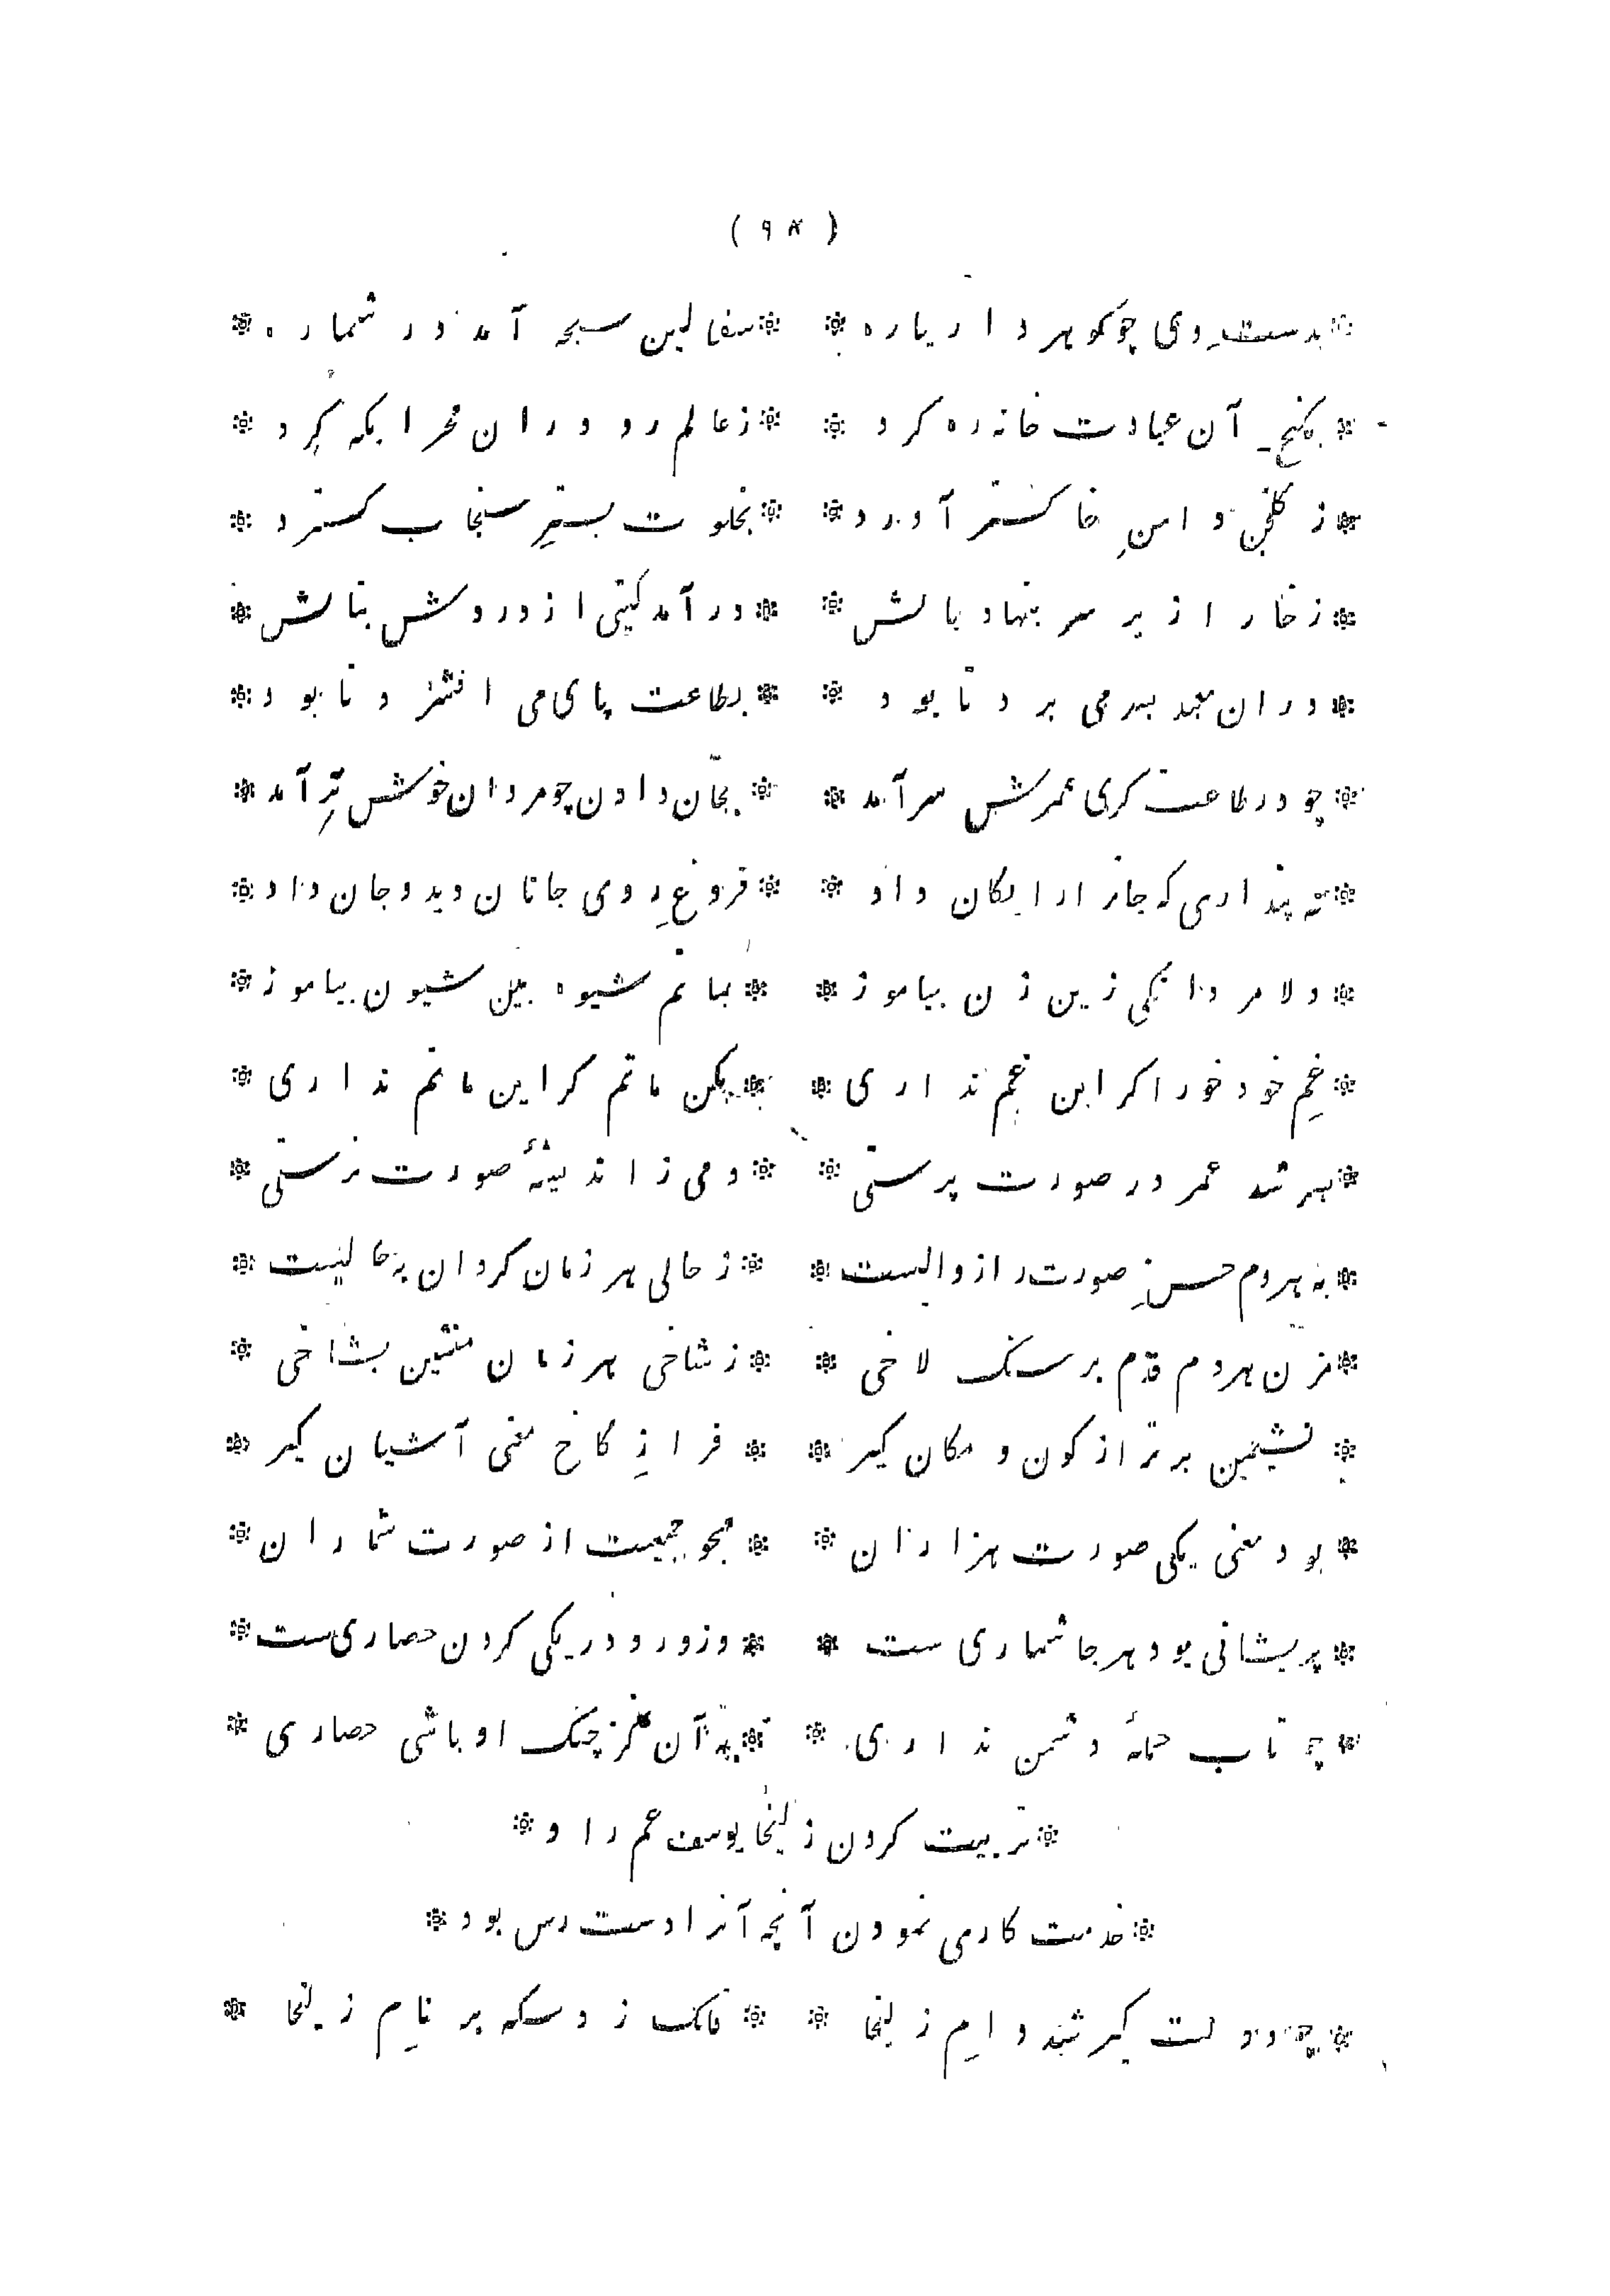 ( ۹۴ )
* بدستِ وی چو کوهر دار یاره * سفالین سبحه آمد در شماره *
* بکنجِ آن عبادت خانه ره کرد * ز عالم رو دران محرابکه کرد *
* ز کلخن دامنِ خاکستر آورد * بخلوت بسترِ سنجاب کسترد *
* ز خارا زیر سر بنهاد بالش * در آمد کیتی از دردش بنالش *
* دران معبد بسر می برد تا بود * بطاعت پای می افشرد تا بود *
* چو در طاعت کری عمرش سر آمد * بجان دادن چو مردان خوش تر آمد *
* نه پنداری که جانرا رایکان داد * فروغِ روی جانان دید و جان داد *
* دلا مردانکی زین زن بیاموز * بماتم شیوه بین شیون بیاموز *
* غمِ خود خور اکر این غم نداری * بکن ماتم کر این ماتم نداری *
* بسر شد عمر در صورت پرستی * دمی ز اندیشهٔ صورت نرستی *
* بهر دم حسنِ صورت را زوالیست * ز حالی هر زمان کردان بحالیست *
* مزن هر دم قدم بر سنک لاخی * ز شاخی هر زمان منشین بشاخی *
* نشیمن برتر از کون و مکان کیر * فرازِ کاخ معنی آشیان کیر *
* بود معنی یکی صورت هزاران * مجو جمعیت از صورت شماران *
* پریشانی بود هر جا شماری ست * وزو رو در یکی کردن حصاری ست *
* چو تاب حملهٔ دشمن نداری * به آن کز جنک او باشی حصاری *
* تربیت کردن زلیخا یوسف عم را و *
* خدمت کاری نمودن آنچه آنرا دست رس بود *
* چو دولت کیر شد دامِ زلیخا * فلک زد سکه بر نامِ زلیخا *